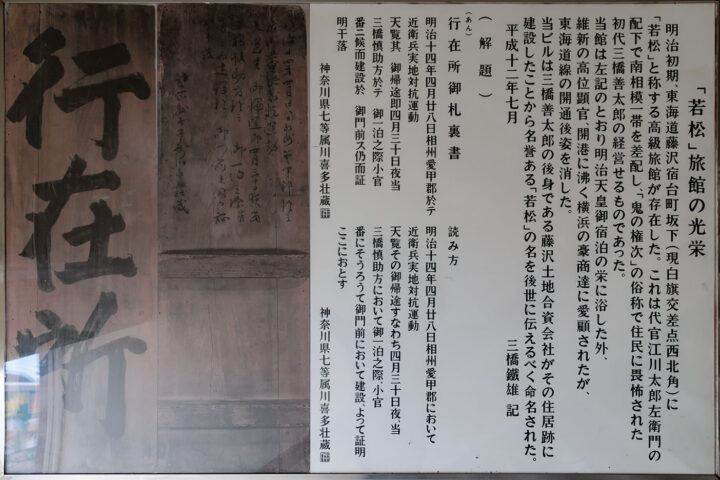 「若松」旅館の光栄
明治初期、東海道藤沢宿台町坂下(現白旗交差点西北角)に
「若松」と称する高級旅館が存在した。これは代官江川太郎左衛門の
配下で南相模一帯を差配し、「鬼の権次」の俗称で住民に畏怖された
初代三橋善太郎の経営せるものであった。
当館は左記のとおり明治天皇御宿泊の栄に浴した外、
維新の高位顕官、開港に沸く横浜の豪商達に愛顧されたが、
東海道線の開通後姿を消した。
当ビルは三橋善太郎の後身である藤沢土地合資会社がその住居跡に
建設したことから名誉ある「若松」の名を後世に伝えるべく命名された。
平成十二年七月
三橋鐵雄 記
(解題)
行在所御札裏書
(あん)
明治十四年四月廿八日相州愛甲郡於テ
近衛兵実地対抗運動
天覧其 御帰途即四月三十日夜当
三橋慎助方於テ 御一泊之際小官
番ニ候而建設於 御門前ス仍而証
明干落
神奈川県七等属川喜多壮蔵
読み方
明治十四年四月廿八日相州愛甲郡において
近衛兵実地対抗運動
天覧その御帰途すなわち四月三十日夜、当
三橋慎助方において御一泊之際、小官
番にそうろうて御門前において建設、よって証明
ここにおとす
神奈川県七等属川喜多壮蔵
行在所